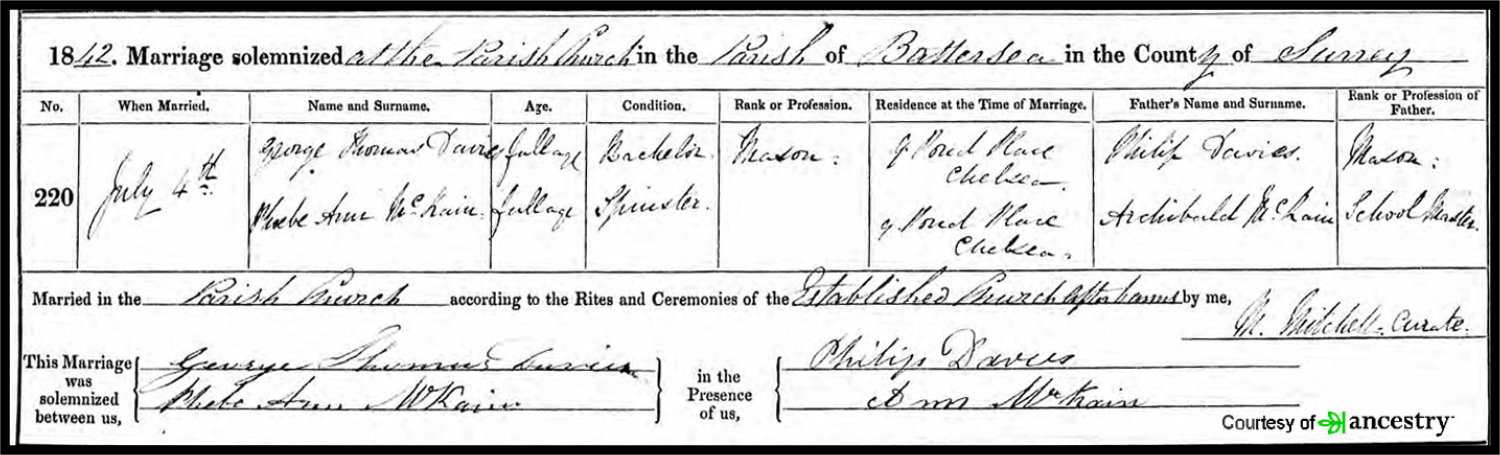 1842. Marriage solemnized at the Parish Church in the Parish of Battersea in the County of Surrey
No. When Married. Name and Surname. Age. Condition. Rank or Profession. Residence at the Time of Marriage. Father's Name and Surname. Rank or Profession of Father.
220 July 4th
George Thomas Davies full age Bachelor. Mason. 9 Pond Place Chelsea. Philip Davies. Mason.
Phoebe Ann McKain. full age Spinster. 9 Pond Place Chelsea. Archibald McKain School Master.
Married in the Parish Church according to the Rites and Ceremonies of the Established Church after banns by me,
M. Mitchell. Curate.
This Marriage was solemnized between us,
George Thomas Davies
Phebe Ann McKain
in the Presence of us,
Philip Davies
Ann McKain
Courtesy of ancestry